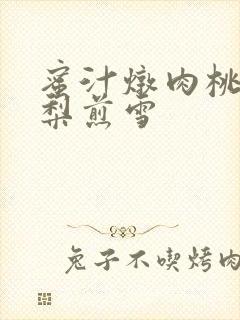 蜜汁燉肉桃
梨煎雪
兔子不喫烤肉